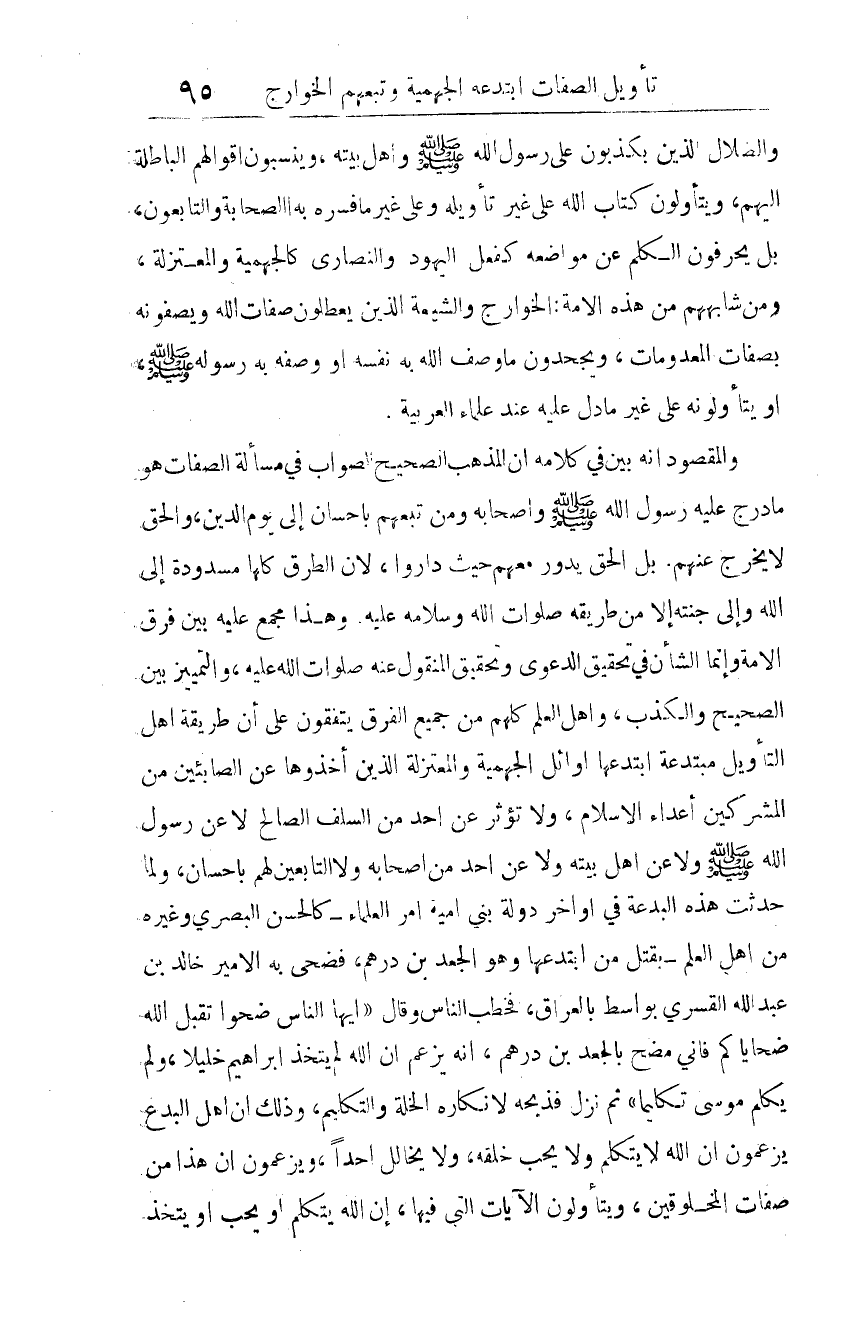 تأويل الصفات ابتدعه الجهمية وتبعهم الخوارج ٩٥
والضلال الذين يكذبون على رسول الله ﷺ وأهل بيته ، وينسبون اقوالهم الباطلة
اليهم ، ويتأولون كتاب الله على غير تأويله وعلى غير مافسره به الصحابة والتابعون ،
بل يحرفون الكلم عن مواضعه كفعل اليهود والنصارى كالجهمية والمعتزلة ،
ومن شابههم من هذه الامة : الخوارج والشيعة الذين يعطلون صفات الله ويصفونه
بصفات المعدومات ، ويجحدون ماوصف الله به نفسه او وصفه به رسوله ﷺ ،
او يتأولونه على غير مادل عليه عند علماء العربية .
والمقصود انه بين في كلامه ان المذهب الصحيح الصواب في مسألة الصفات هو
مادرج عليه رسول الله ﷺ واصحابه ومن تبعهم باحسان إلى يوم الدين ، والحق
لايخرج عنهم . بل الحق يدور معهم حيث داروا ، لان الطرق كلها مسدودة إلى
الله وإلى جنته إلا من طريقه صلوات الله وسلامه عليه . وهذا مجمع عليه بين فرق
الامة وإنما الشأن في تحقيق الدعوى وتحقيق المنقول عنه صلوات الله عليه ، والتمييز بين
الصحيح والكذب ، واهل العلم كلهم من جميع الفرق يتفقون على أن طريقة اهل
التأويل مبتدعة ابتدعها اوائل الجهمية والمعتزلة الذين أخذوها عن الصابئين من
المشركين أعداء الاسلام ، ولا تؤثر عن احد من السلف الصالح لا عن رسول
الله ﷺ ولا عن اهل بيته ولا عن احد من اصحابه ولا التابعين لهم باحسان ، ولما
حدثت هذه البدعة في اواخر دولة بني امية امر العلماء ـ كالحسن البصري وغيره
من اهل العلم ـ بقتل من ابتدعها وهو الجعد بن درهم ، فضحى به الامير خالد بن
عبد الله القسري بواسط بالعراق ، فخطب الناس وقال «ايها الناس ضحوا تقبل الله
ضحاياكم فاني مضح بالجعد بن درهم ، انه يزعم ان الله لم يتخذ ابراهيم خليلا ، ولم
يكلم موسى تكليما» ثم نزل فذبحه لانكاره الخلة والتكليم ، وذلك ان اهل البدع
يزعمون ان الله لايتكلم ولا يحب خلقه ، ولا يخالل احداً ، ويزعمون ان هذا من
صفات المخلوقين ، ويتأولون الآيات التي فيها ، إن الله يتكلم او يحب او يتخذ